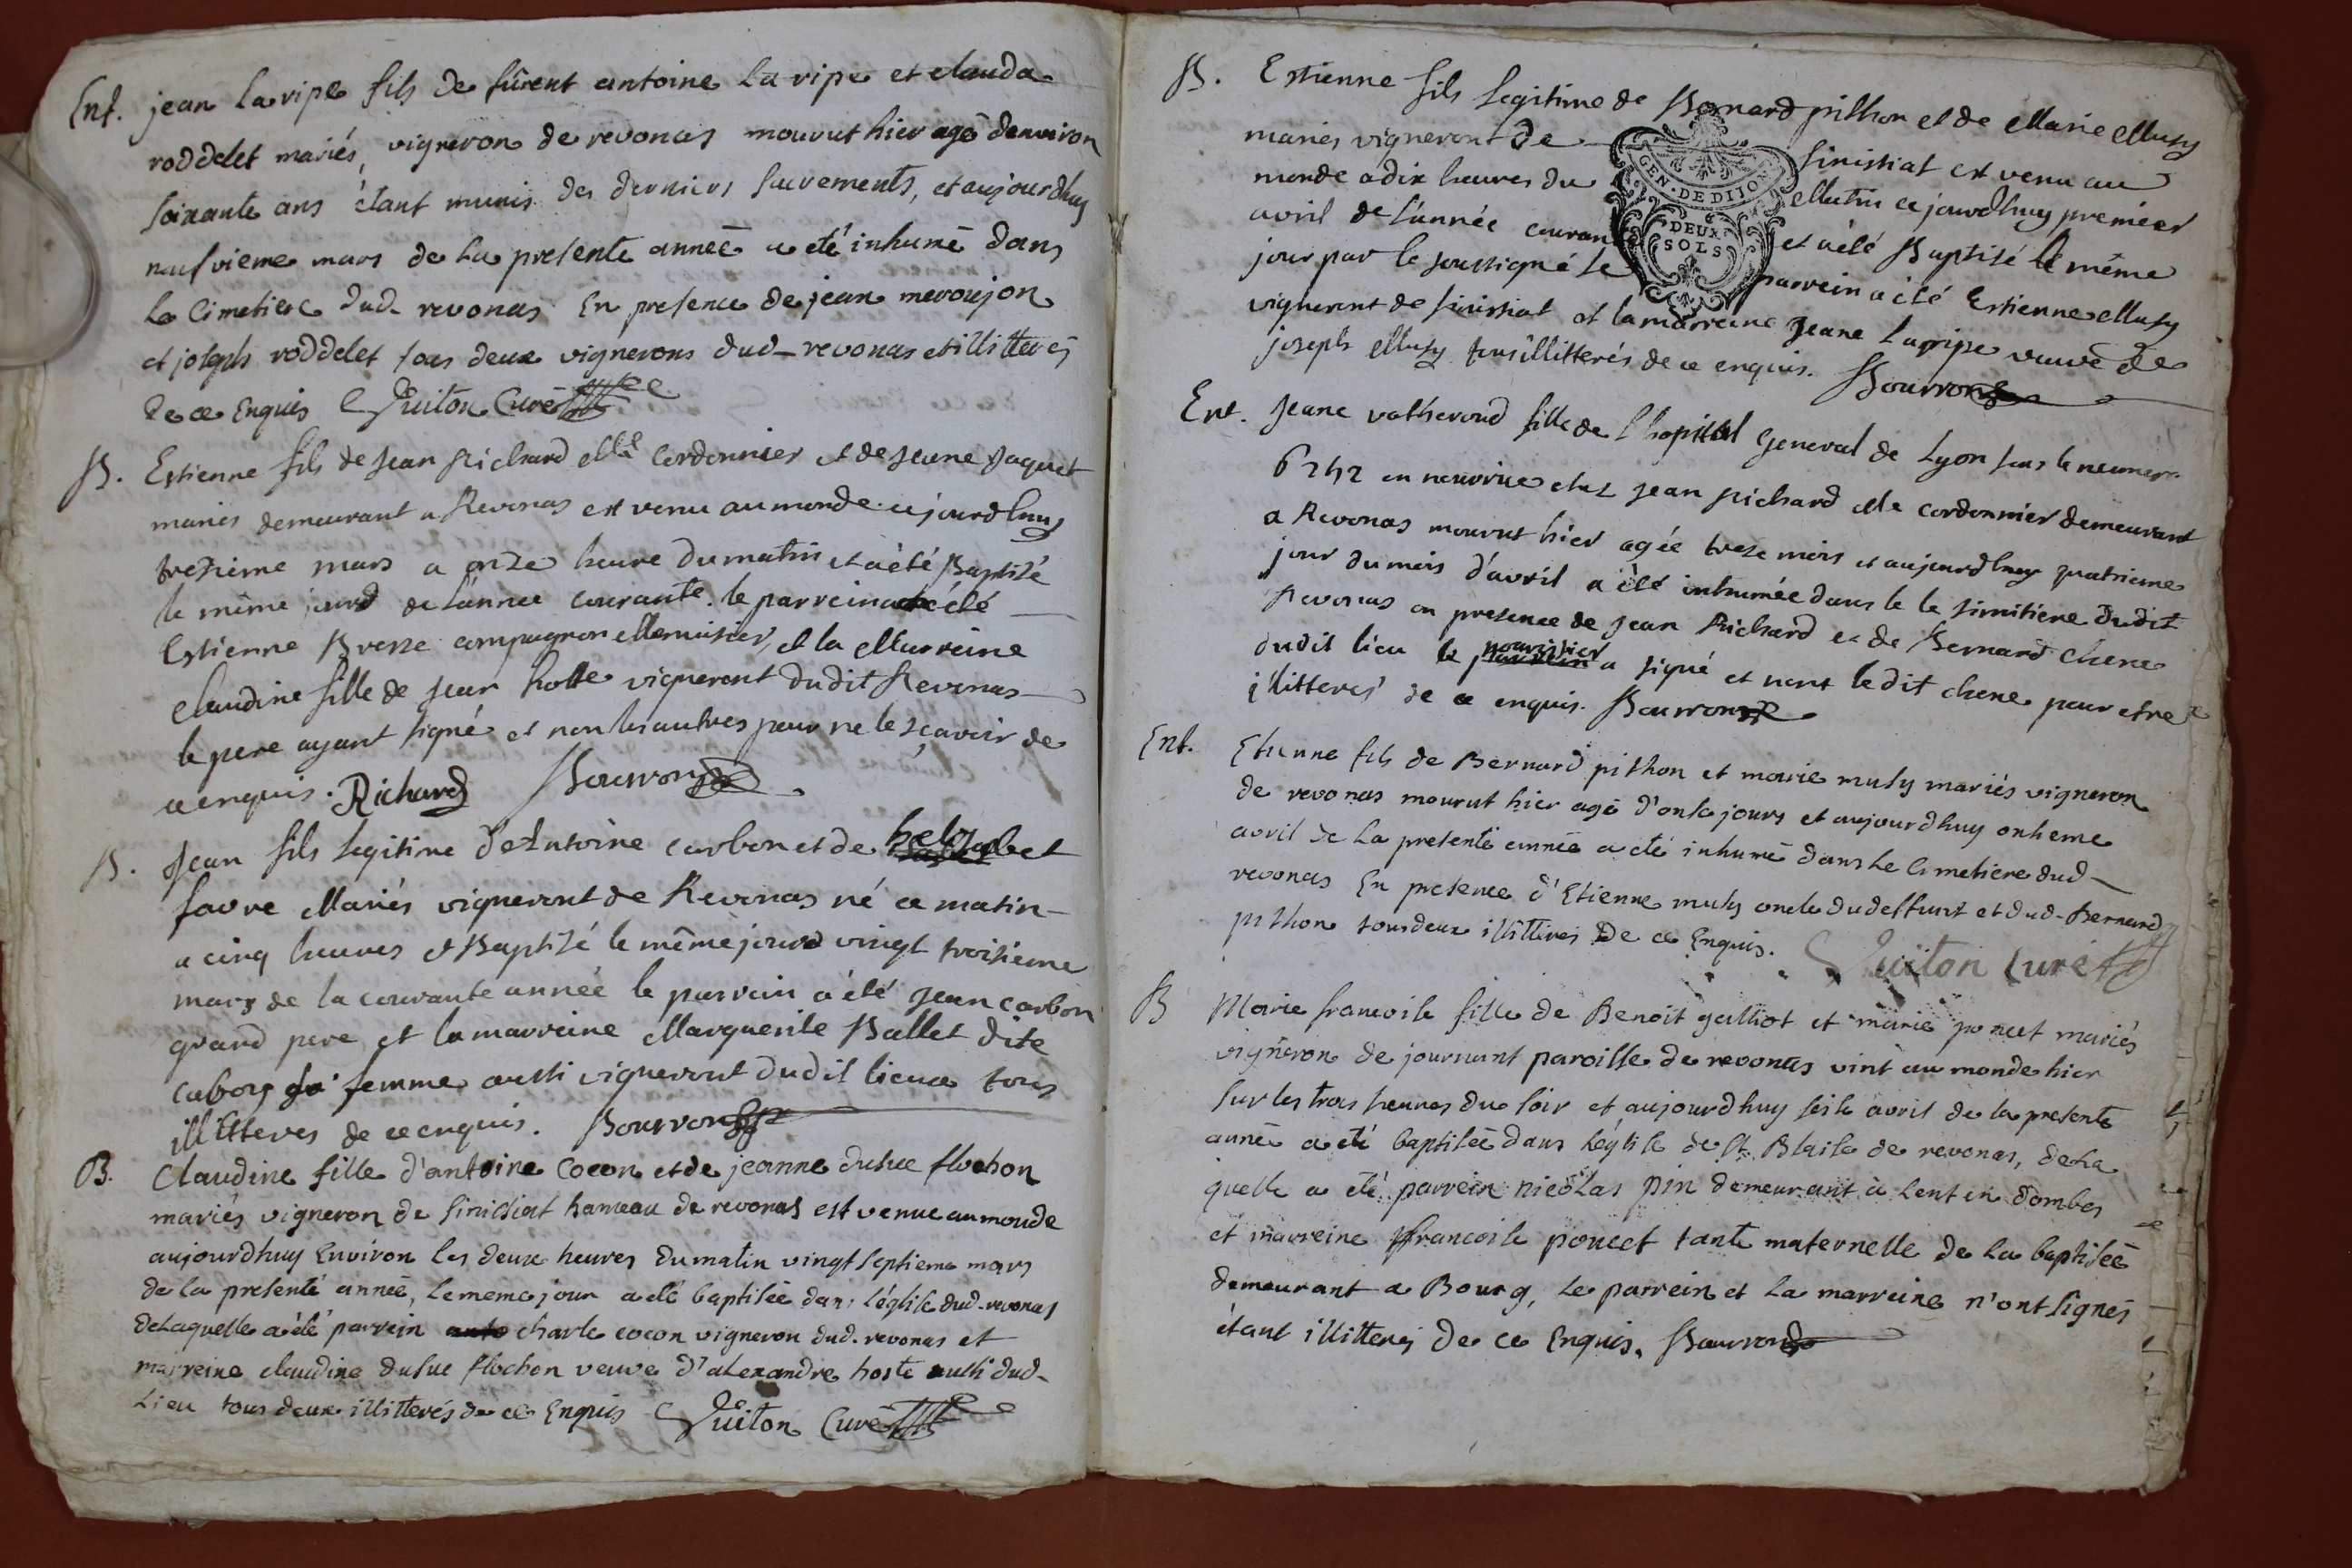 Ent. jean La ripe fils de fûrent antoine La ripe et clauda
roddelet mariés, vigneron de revonas mourut hier agé denviron
soixante ans étant munis des derniers sacrements, et aujourdhuy
neufvieme mars de La presente année a été inhumé dans
Le Cimetiere dud. revonas En presence de jean meroujon
et joseph roddelet tous deux vignerons dud. revonas et illitterés
de ce Enquis Guiton Curé
B. Estienne fils de Jean Richard Me Cordonnier et de Jeane Jaquet
mariés demeurant a Revonas est venu au monde cejourdhuy
trezieme mars a onze heure du matin et a été Baptisé
le même jourd de l'année courante. le parrein a été
Estienne Bresse compagnon Menuisier, et la Marreine
Claudine fille de Jean hotte vigneront dudit Revonas
le pere ayant signé et non les autres pour ne le sçavoir de
ce enquis. Richard Bourron
B. Jean fils legitime d'Antoine carbon et de helizabet
favre Mariés vigneront de Revonas né ce matin
a cinq heures et Baptisé le même jourd vingt troisieme
mars de la courante année le parrein a été Jean carbon
grand pere et la marreine Marguerite Ballet dite
cabory sa femme aussi vigneront dudit lieux tous
illitteres de ce enquis. Bourron
B. Claudine fille d'antoine Cocon et de jeanne dusuc flochon
mariés vigneron de Sinissiat hameau de revonas est venue au monde
aujourdhuy Environ les deux heures du matin vingt septieme mars
de la presente année, le meme jour a été baptisée dans l'église dud. revonas
de Laquelle a été parrein charle cocon vigneron dud. revonas et
marreine claudine dusuc flochon veuve d'alexandre hoste aussi dud.
Lieu tous deux illitterés de ce Enquis Guiton Curé
B. Estienne fils legitime de Bernard pithon et de Marie Musy
mariés vigneront de Sinissiat est venu au
monde a dix heures du Matin ce jourdhuy premier
avril de l'année courante et a été Baptisé le même
jour par le soussigné le parrein a été Estienne Musy
vigneront de sinissiat et la marreine Jeane Laripe veuve de
joseph Musy tous illitterés de ce enquis. Bourron
GEN. DE DIJON
DEUX
SOLS
Ent. Jeane vatheroud fille de l'hopital General de Lyon sous le numero
6242 en nourrice chez Jean Richard Me cordonnier demeurant
a Revonas mourut hier agée treze mois et aujourdhuy quatrieme
jour du mois d'avril a été inhumée dans le le simitiere dudit
Revonas en presence de Jean Richard et de Bernard chene
dudit lieu le nourissier a signé et nont le dit chene pour etre
illitteres de ce enquis. Bourron
Ent. Etienne fils de Bernard pithon et marie musy mariés vigneron
de revonas mourut hier agé d'onse jours et aujourdhuy onsieme
avril de La presente année a été inhumé dans Le Cimetiere dud.
revonas En presence d'Etienne musy oncle du deffunt et dud. Bernard
pithon tous deux illitteres de ce Enquis. Guiton Curé
B Marie francoise fille de Benoit galliot et marie poncet mariés
vigneron de journant paroisse de revonas vint au monde hier
sur les trois heures du soir et aujourdhuy seise avril de la presente
année a été baptisée dans l'église de St. Blaise de revonas, de La
quelle a été parrein nicolas pin demeurant a Lent en dombes
et marreine francoise poncet tante maternelle de La baptisée
demeurant a Bourg, Le parrein et La marreine n'ont signés
étant illitteres de ce Enquis. Bourron